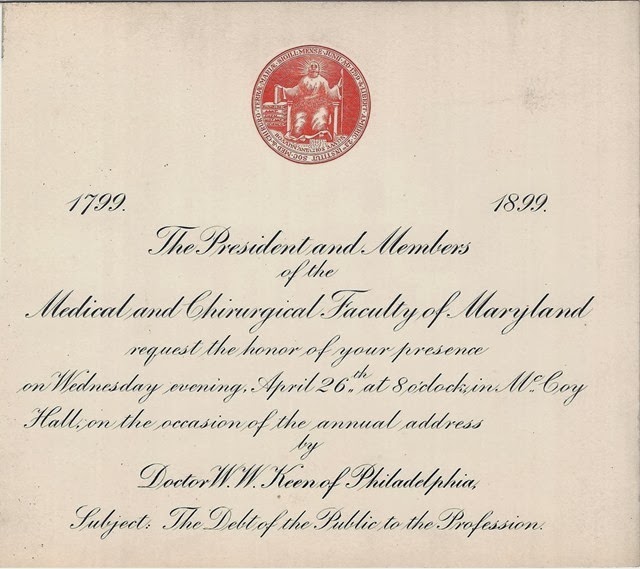 1799. 1899.
The President and Members
of the
Medical and Chirurgical Faculty of Maryland
request the honor of your presence
on Wednesday evening, April 26th at 8 o'clock, in McCoy
Hall, on the occasion of the annual address
by
Doctor W. W. Keen of Philadelphia,
Subject: The Debt of the Public to the Profession.